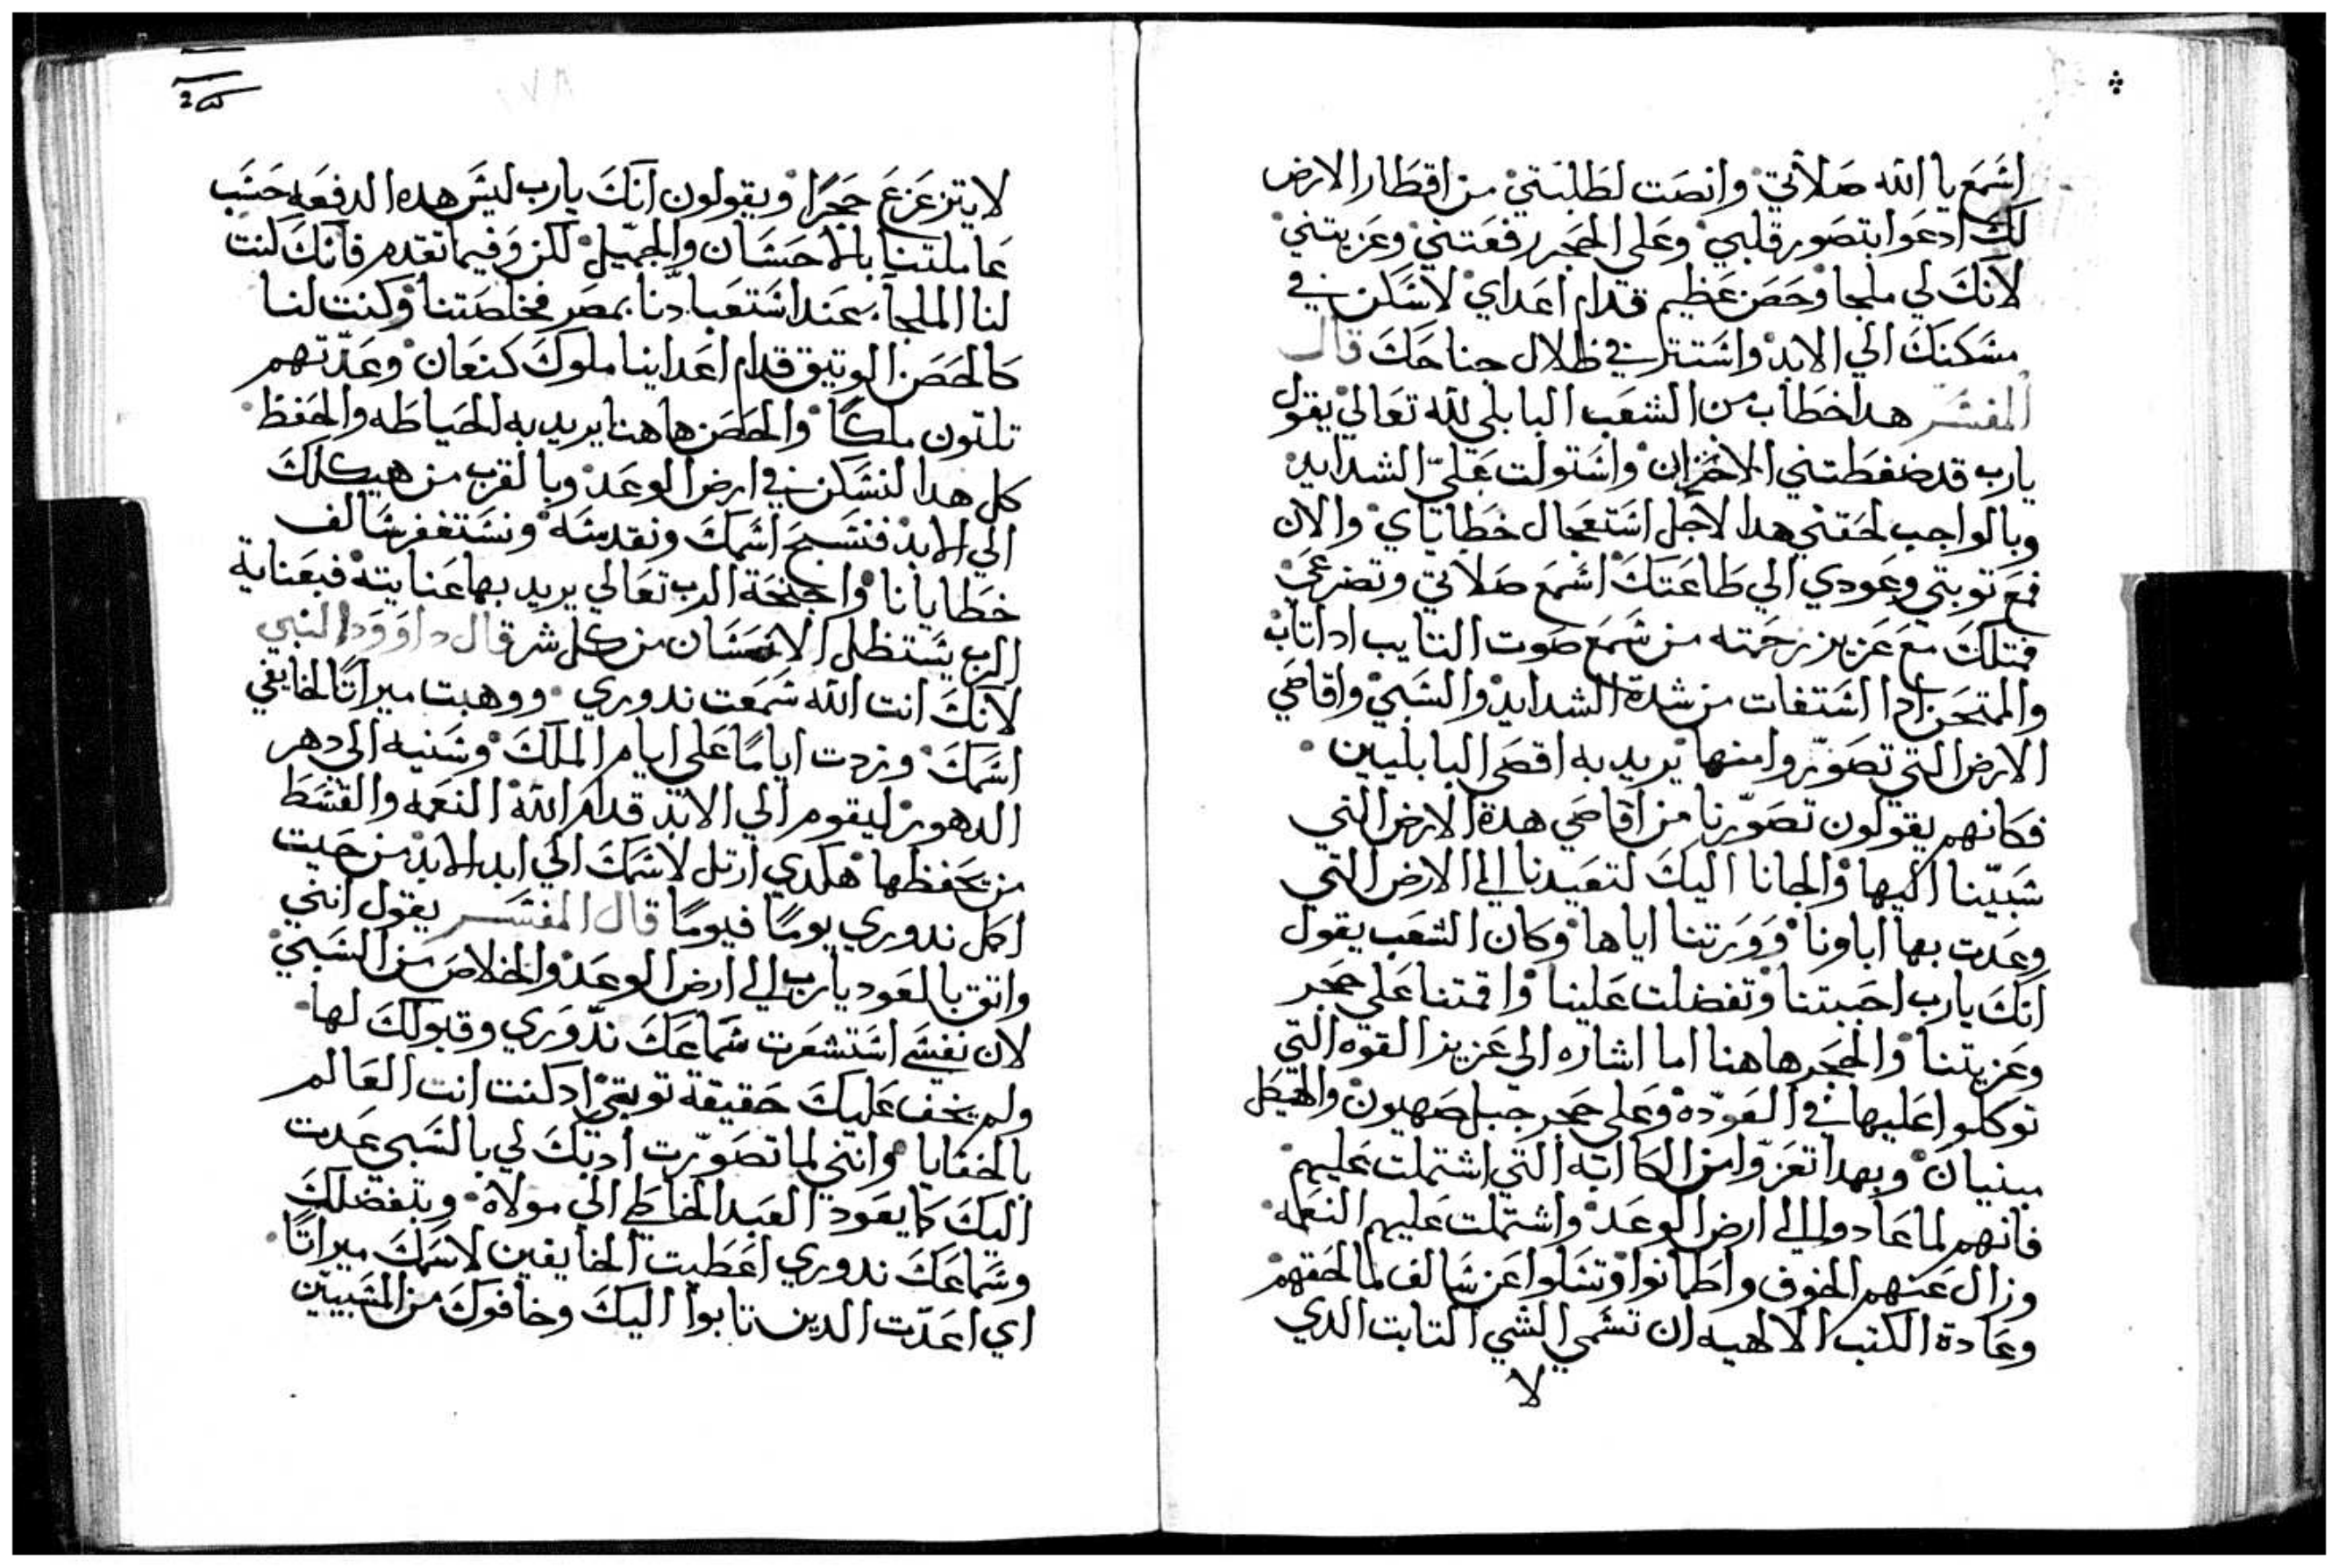 اسمع يا الله صلاتي وانصت لطلبتي من اقطار الارض
لك ادعوا بتصور قلبي وعلى الحجر رفعتني وعزيتني
لانك لي ملجا وحصن عظيم قدام اعداي لاسكن في
مسكنك الي الابد واستتر في ظلال جناحك قال
المفسر هدا خطاب من الشعب البابلي لله تعالي يقول
يارب قد ضغطتني الاحزان واستولت علي الشدايد
وبالواجب لحقني هدا لاجل استعجال خطاياي والان
فمع توبتي وعودي الي طاعتك اسمع صلاتي وتضرعي
فمتلك مع عزيز رحمته من سمع صوت التايب ادا تاب
والممتحن ادا استغات من شدة الشدايد والسبي واقاصي
الارض التي تصوّروا منها يريد به اقصى البابليين
فكانهم يقولون تصوّرنا من اقاصي هدة الارض التي
سبيّنا اليها والجانا اليك لتعيدنا الى الارض التي
وعدت بها اباونا وورتنا اياها وكان الشعب يقول
انك يارب احببتنا وتفضلت علينا واقمتنا على حجر
وعزيتنا والحجر هاهنا اما اشاره الى عزيز القوه التي
توكلوا عليها في العوّده وعلى حجر جبل صهيون والهيكل
مبنيان وبهدا تعزّوا من الكاابه التي اشتملت عليهم
فانهم لما عادوا الى ارض الوعد واشتملت عليهم النعمه
وزال عنهم الخوف واطمانوا وتسلوا عن سالف ما لحقهم
وعادة الكتب الالهيه ان تسمى الشي التابت الدي
لا
لا يتزعزع حجرًا ويقولون انك يارب ليس هده الدفعه حسب
عاملتنا بالاحسان والجميل لكن وفيما تقدم فانك كنت
لنا الملجأ عند استعبادنا بمصر فخلصتنا وكنت لنا
كالحصن الوتيق قدام اعداينا ملوك كنعان وعدّتهم
تلتون ملكًا والحصن هاهنا يريد به الحياطه والحفظ
كل هدا لنسكن في ارض الوعد وبالقرب من هيكلك
الي الابد فنسبح اسمك ونقدسه ونستغفر سالف
خطايانا واجنحة الرب تعالي يريد بها عنايته فبعناية
الرب يستظل الانسان من كل شر قال داوود النبي
لانك انت الله سمعت ندوري ووهبت ميراتًا لخايفي
اسمك وزدت ايامًا على ايام الملك وسنيه الى دهر
الدهور ليقوم الي الابد قدام الله النعمه والقسط
من يحفظها هكدي ارتل لاسمك الى ابد الابد من حيت
اكمل ندوري يومًا فيومًا قال المفسر يقول انني
واتق بالعود يارب الى ارض الوعد والخلاص من السبي
لان نفسي استشعرت سماعك ندّوري وقبولك لها
ولم يخف عليك حقيقة توبتي اد كنت انت العالم
بالخفايا وانني لما تصوّرت ادبك لي بالسبي عدت
اليك كما يعود العبد الخاطي الى مولاة وبتفضلك
وسماعك ندوري اعطيت الخايفين لاسمك ميراتًا
اي اعدّت الدين تابوا اليك وخافوك من المسبيّين